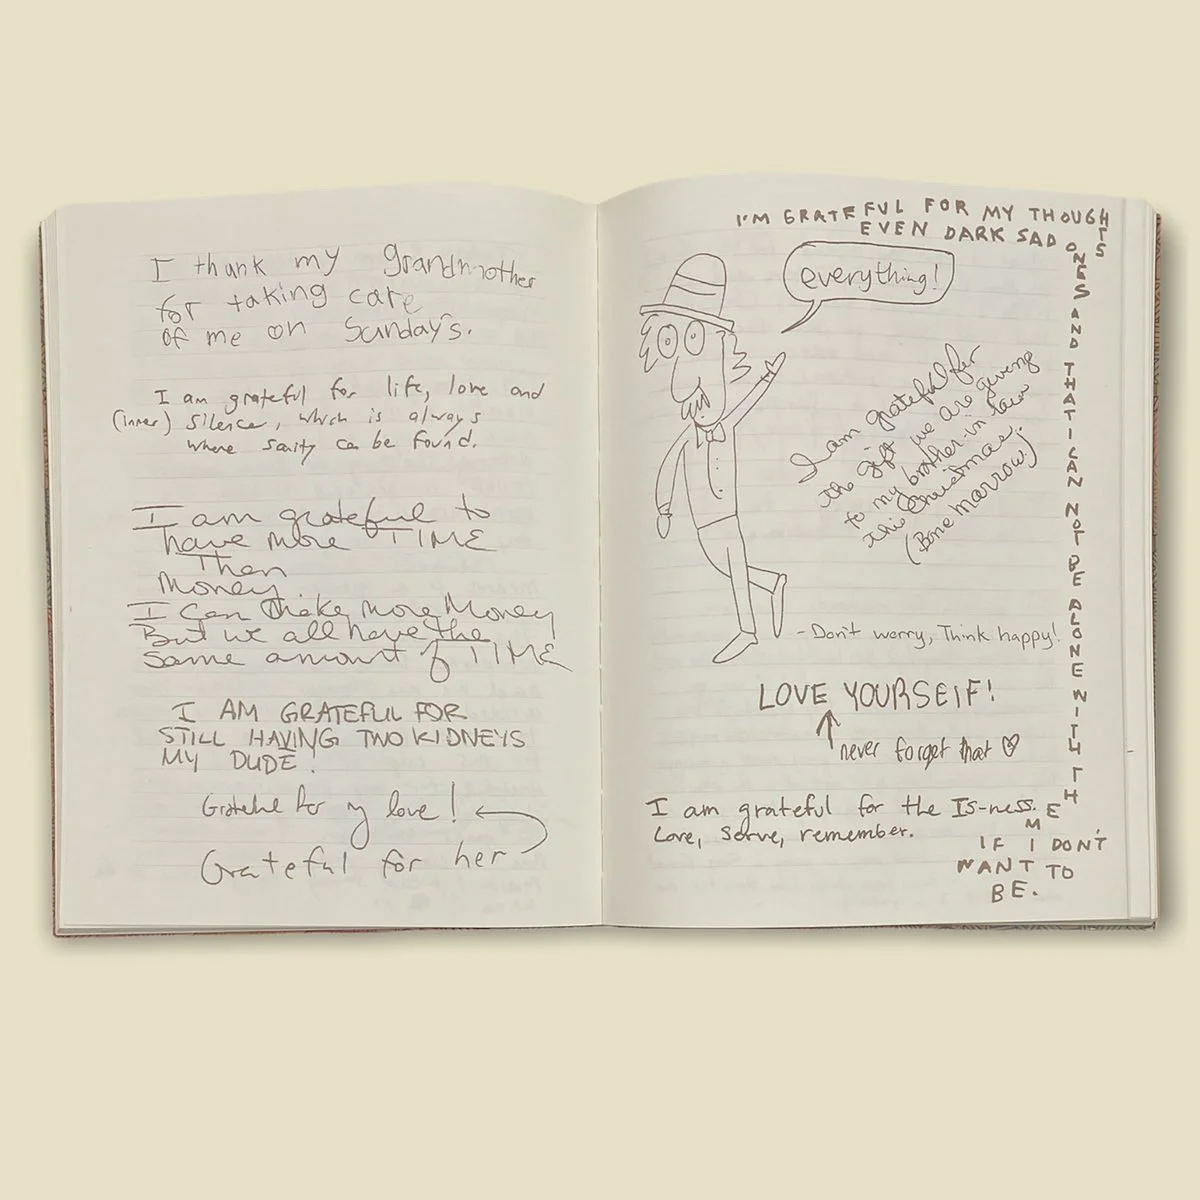 I thank my grandmother
for taking care
of me on Sunday's.
I am grateful for life, love and
(inner) silence, which is always
where sanity can be found.
I am grateful to
have more TIME
Then
Money
I Can Make More Money
But we all have the
same amount of TIME
I AM GRATEFUL FOR
STILL HAVING TWO KIDNEYS
MY DUDE!
Grateful for my love!
Grateful for her
I'M GRATEFUL FOR MY THOUGHTS
EVEN DARK SAD ONES AND THAT I CAN NOT BE ALONE WITH THEM
IF I DON'T
WANT TO
BE.
everything!
I am grateful for
the gift we are giving
to my brother-in law
this Christmas.
(Bone marrow!)
- Don't worry, Think happy!
LOVE YOURSELF!
never forget that
I am grateful for the Is-ness.
Love, serve, remember.